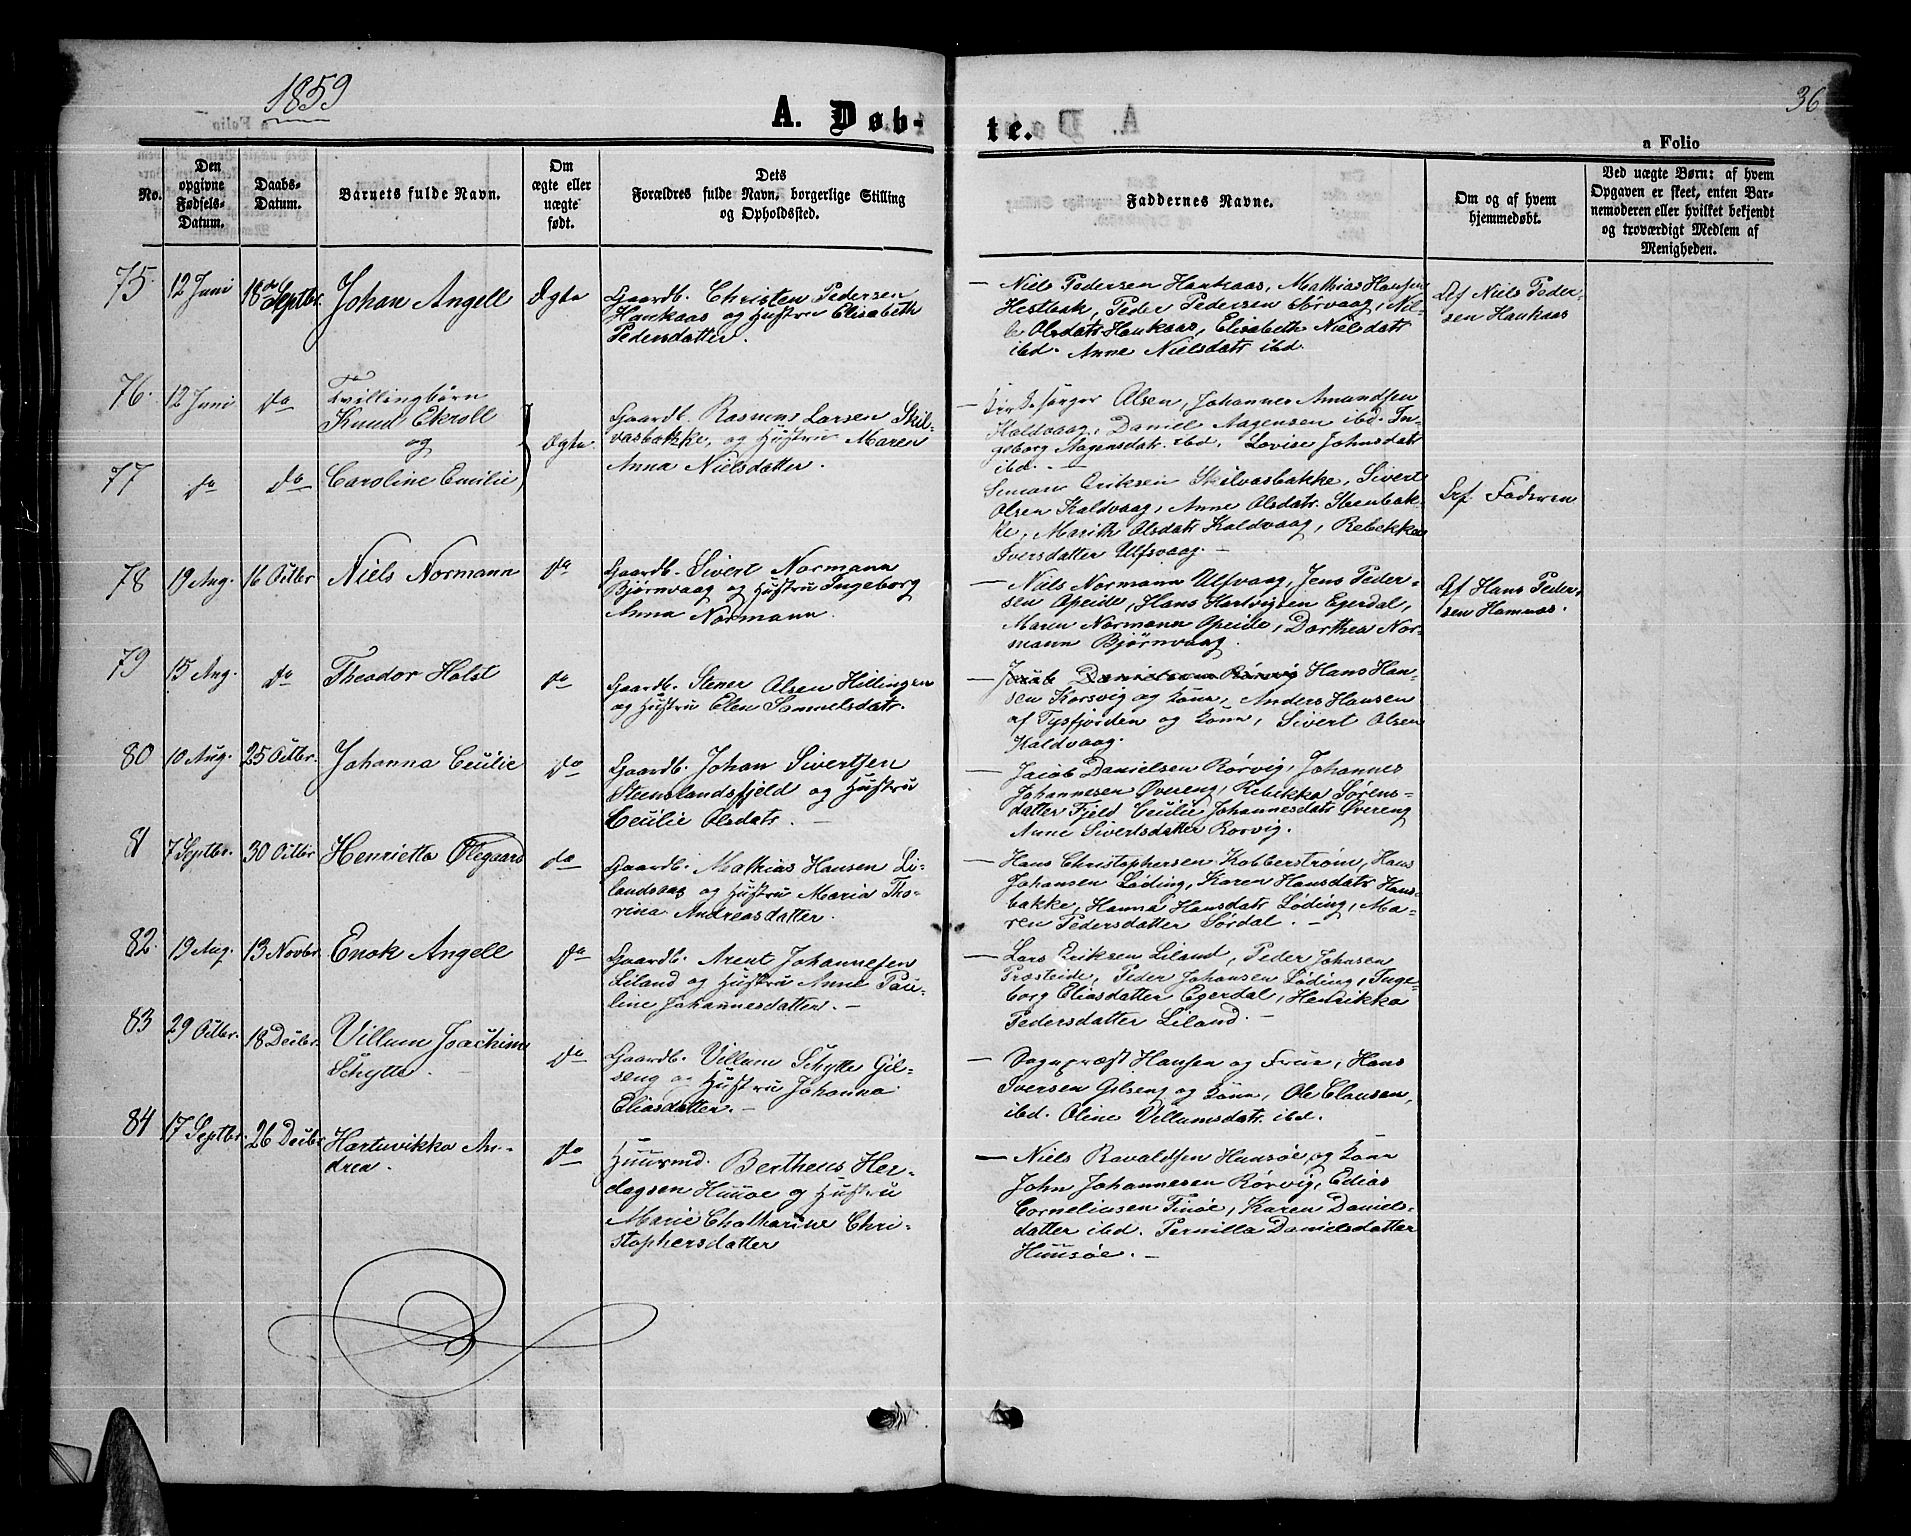 1859
36
A. Døb-
te.
a Folio
No.
Den
opgivne
Fødsels-
Datum.
Daabs-
Datum.
Barnets fulde Navn.
Om
ægte eller
uægte
født.
Dets
Forældres fulde Navn, borgerlige Stilling
og Opholdssted.
Faddernes Navne.
Om og af hvem
hjemmedøbt.
Ved uægte Børn: af hvem
Opgaven er skeet, enten Bar-
nemoderen eller hvilket bekjendt
og troværdigt Medlem af
Menigheden.
75.
12 Juni
18de Septbr.
Johan Angell
Ægte
Gaardb. Christen Pedersen
Haukaas og Hustru Elisabeth
Pedersdatter.
— Niels Pedersen Haukaas, Mathias Hansen
Hestbak, Peder Pedersen Sørvaag, Nil-
le Olsdatr Haukaas, Elisabeth Nielsdatr
ibd. Anne Nielsdatr ibd.
Af Niels Peder-
sen Haukaas
76.
12 Juni
do
Tvillingbørn
Knud Ekroll
og
Ægte.
Gaardb. Rasmus Larsen Skil-
vasbakke, og Hustru Maren
Anna Nielsdatter.
— Kirkesanger Olsen, Johannes Amundsen
Kaldvaag, Daniel Aagensen ibd. In-
geborg Aagensdatr. ibd. Lovise Johnsdatr
ibd. —
77
do
do
Caroline Emilie
Simon Eriksen Skilvasbakke, Sivert
Olsen Kaldvaag, Anne Olsdatr. Steenbak-
ke, Marith Olsdatr Kaldvaag, Rebekka
Iversdatter Ulfsvaag. —
Af Faderen
78
19 Aug.
16 Octbr
Niels Normann
do
Gaardb. Sivert Normann
Bjørnvaag og Hustru Ingeborg
Anna Normann.
— Niels Normann Ulfvaag, Jens Peder-
sen Opeide, Hans Hartvigsen Egerdal,
Maren Normann Opeide, Dorthea Nor-
mann Bjørnvaag.
Af Hans Peder-
sen Hamnas.
79
15 Aug.
do
Theodor Holst
do
Gaardb. Stener Olsen Hillingen
og Hustru Elen Samuelsdatr.
— Jacob Danielsen Rørvig Hans Han-
sen Korsvig og Kone, Anders Hansen
af Tysfjorden og Kone, Sivert Olsen
Kaldvaag.
80
10 Aug.
25 Octbr.
Johanna Cecilie
do
Gaardb. Johan Sivertsen
Steenslandsfjeld og Hustru
Cecilie Olsdatr. —
— Jacob Danielsen Rørvig, Johannes
Johannesen Øvereng, Rebekka Sørens-
datter Fjeld Cecilie Johannesdatr Øvereng
Anne Sivertsdatter Rørvig.
81
7 Septbr.
30 Octbr
Henrietta Ølegaard
do
Gaardb. Mathias Hansen Li-
landsvag og Hustru Maria Tho-
rina Andreasdatter.
— Hans Christophersen Kobberstrøm, Hans
Johansen Løding, Karen Hansdatr Hans-
bakke, Hanna Hansdatr Løding, Ma-
ren Pedersdatter Sørdal. —
82.
19 Aug.
13 Novbr.
Enok Angell
do
Gaardb. Arent Johannesen
Liland og Hustru Anne Pau-
line Johannesdatter. —
— Lars Eriksen Liland, Peder Johnsen
Presteide, Peder Johansen Løding, Inge-
borg Eliasdatter Egerdal, Henrikka
Pedersdatter Liland. —
83
29 Octbr.
18 Decbr.
Villum Joachim
Schytte. —
do
Gaardb. Villum Schytte Gil-
seng og Hustru Johanna
Eliasdatter. —
— Sognepræst Hansen og Frue, Hans
Iversen Gilseng og Kone, Ole Clausen,
ibd. Oline Villumsdatr. ibd.
84
17 Septbr.
26 Decbr.
Hartuvikka An-
drea.
do
Huusmd. Bertheus Her-
dagsen Huusøe og Hustru
Marie Chatharine Chri-
stophersdatter
— Niels Ravaldsen Huusøe og Kone
John Johannesen Rørvig, Edias
Corneliusen Finøe, Karen Daniels-
datter ibd. Pernilla Danielsdatter
Huusøe. —